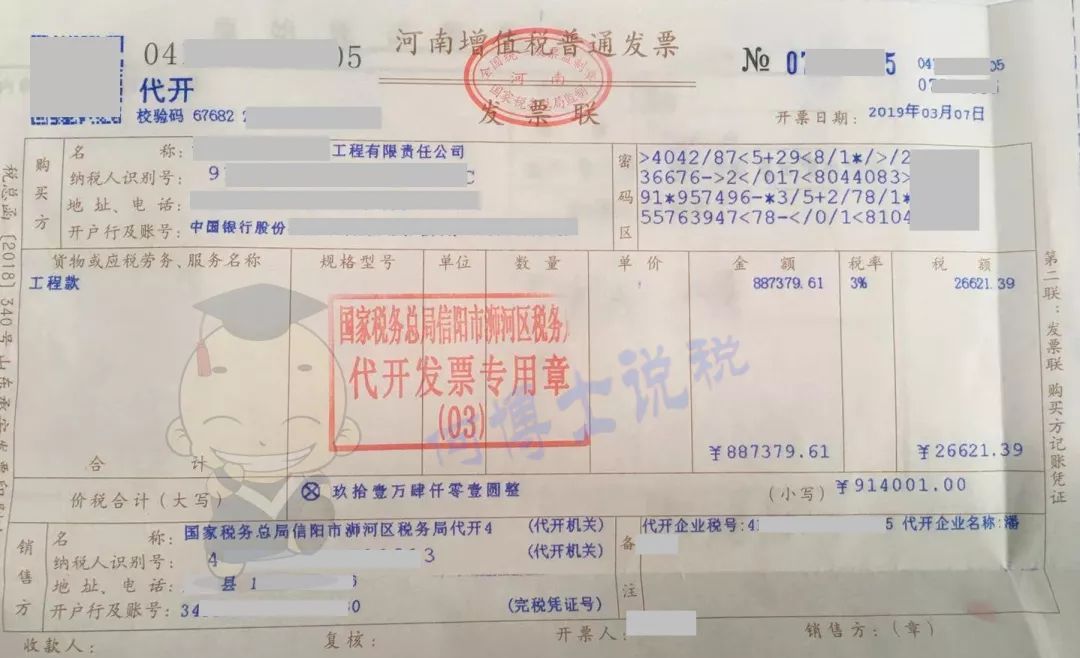 河南增值税普通发票
发票联
全国统一发票监制章
河南
国家税务总局监制
04 05
代开
校验码 67682 2
№ 07 5
04 05
07
开票日期: 2019年03月07日
税总函〔2018〕340号
购买方
名 称: 工程有限责任公司
纳税人识别号: 9 C
地 址、电 话:
开户行及账号: 中国银行股份
密码区
>4042/87<5+29<8/1*/>/2
36676->2</017<8044083>
91*957496-*3/5+2/78/1*
55763947<78-</0/1<8104
货物或应税劳务、服务名称 规格型号 单位 数量 单价 金额 税率 税额
工程款 887379.61 3% 26621.39
国家税务总局信阳市浉河区税务
代开发票专用章
(03)
阿博士说税
合 计 ¥887379.61 ¥26621.39
价税合计(大写) ⊗玖拾壹万肆仟零壹圆整 (小写) ¥914001.00
第二联:发票联 购买方记账凭证
销售方
名 称: 国家税务总局信阳市浉河区税务局代开4 (代开机关)
纳税人识别号: 4 3 (代开机关)
地 址、电 话: 县1 6
开户行及账号: 34 30 (完税凭证号)
备注
代开企业税号:41 5 代开企业名称:潘
收款人: 复核: 开票人: 销售方:(章)